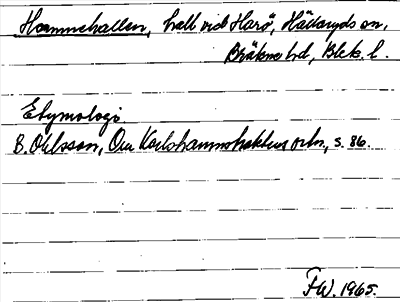 Hamnehallen, hall vid Harö, Hällaryds sn,
Bräkne hd, Blek. l.
Etymologi.
B. Ohlsson, Om Karlshamnstraktens ortn., s. 86.
FW. 1965.